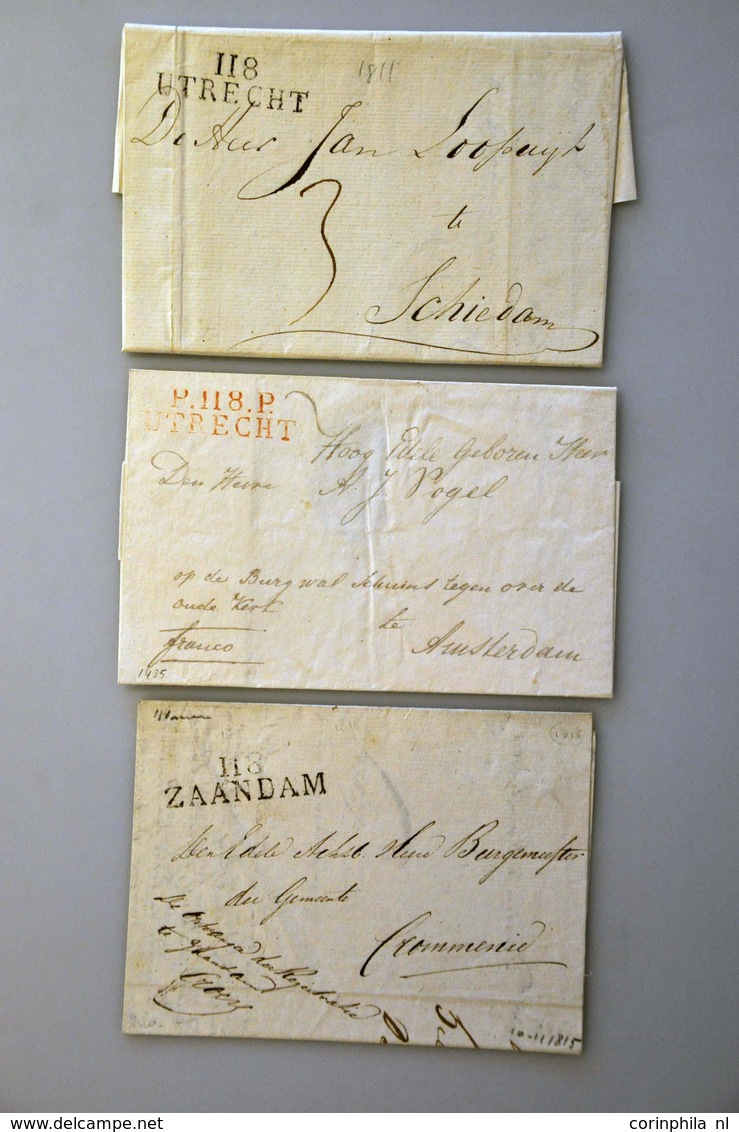 118
UTRECHT
1811
De Heer Jan Loopuijt
3
te
Schiedam
P.118.P.
UTRECHT
Hoog Edele Geboren Heer
Den Heere A. J. Vogel
op de Burgwal schuins tegen over de
oude Kerk
te
franco
Amsterdam
1435
118
ZAANDAM
Den Edele Achtb. Heer Burgemeester
der Gemeente
Crommenie
De Ontvanger der Registratie
te
10-11 1815
delcampe.net
corinphila nl